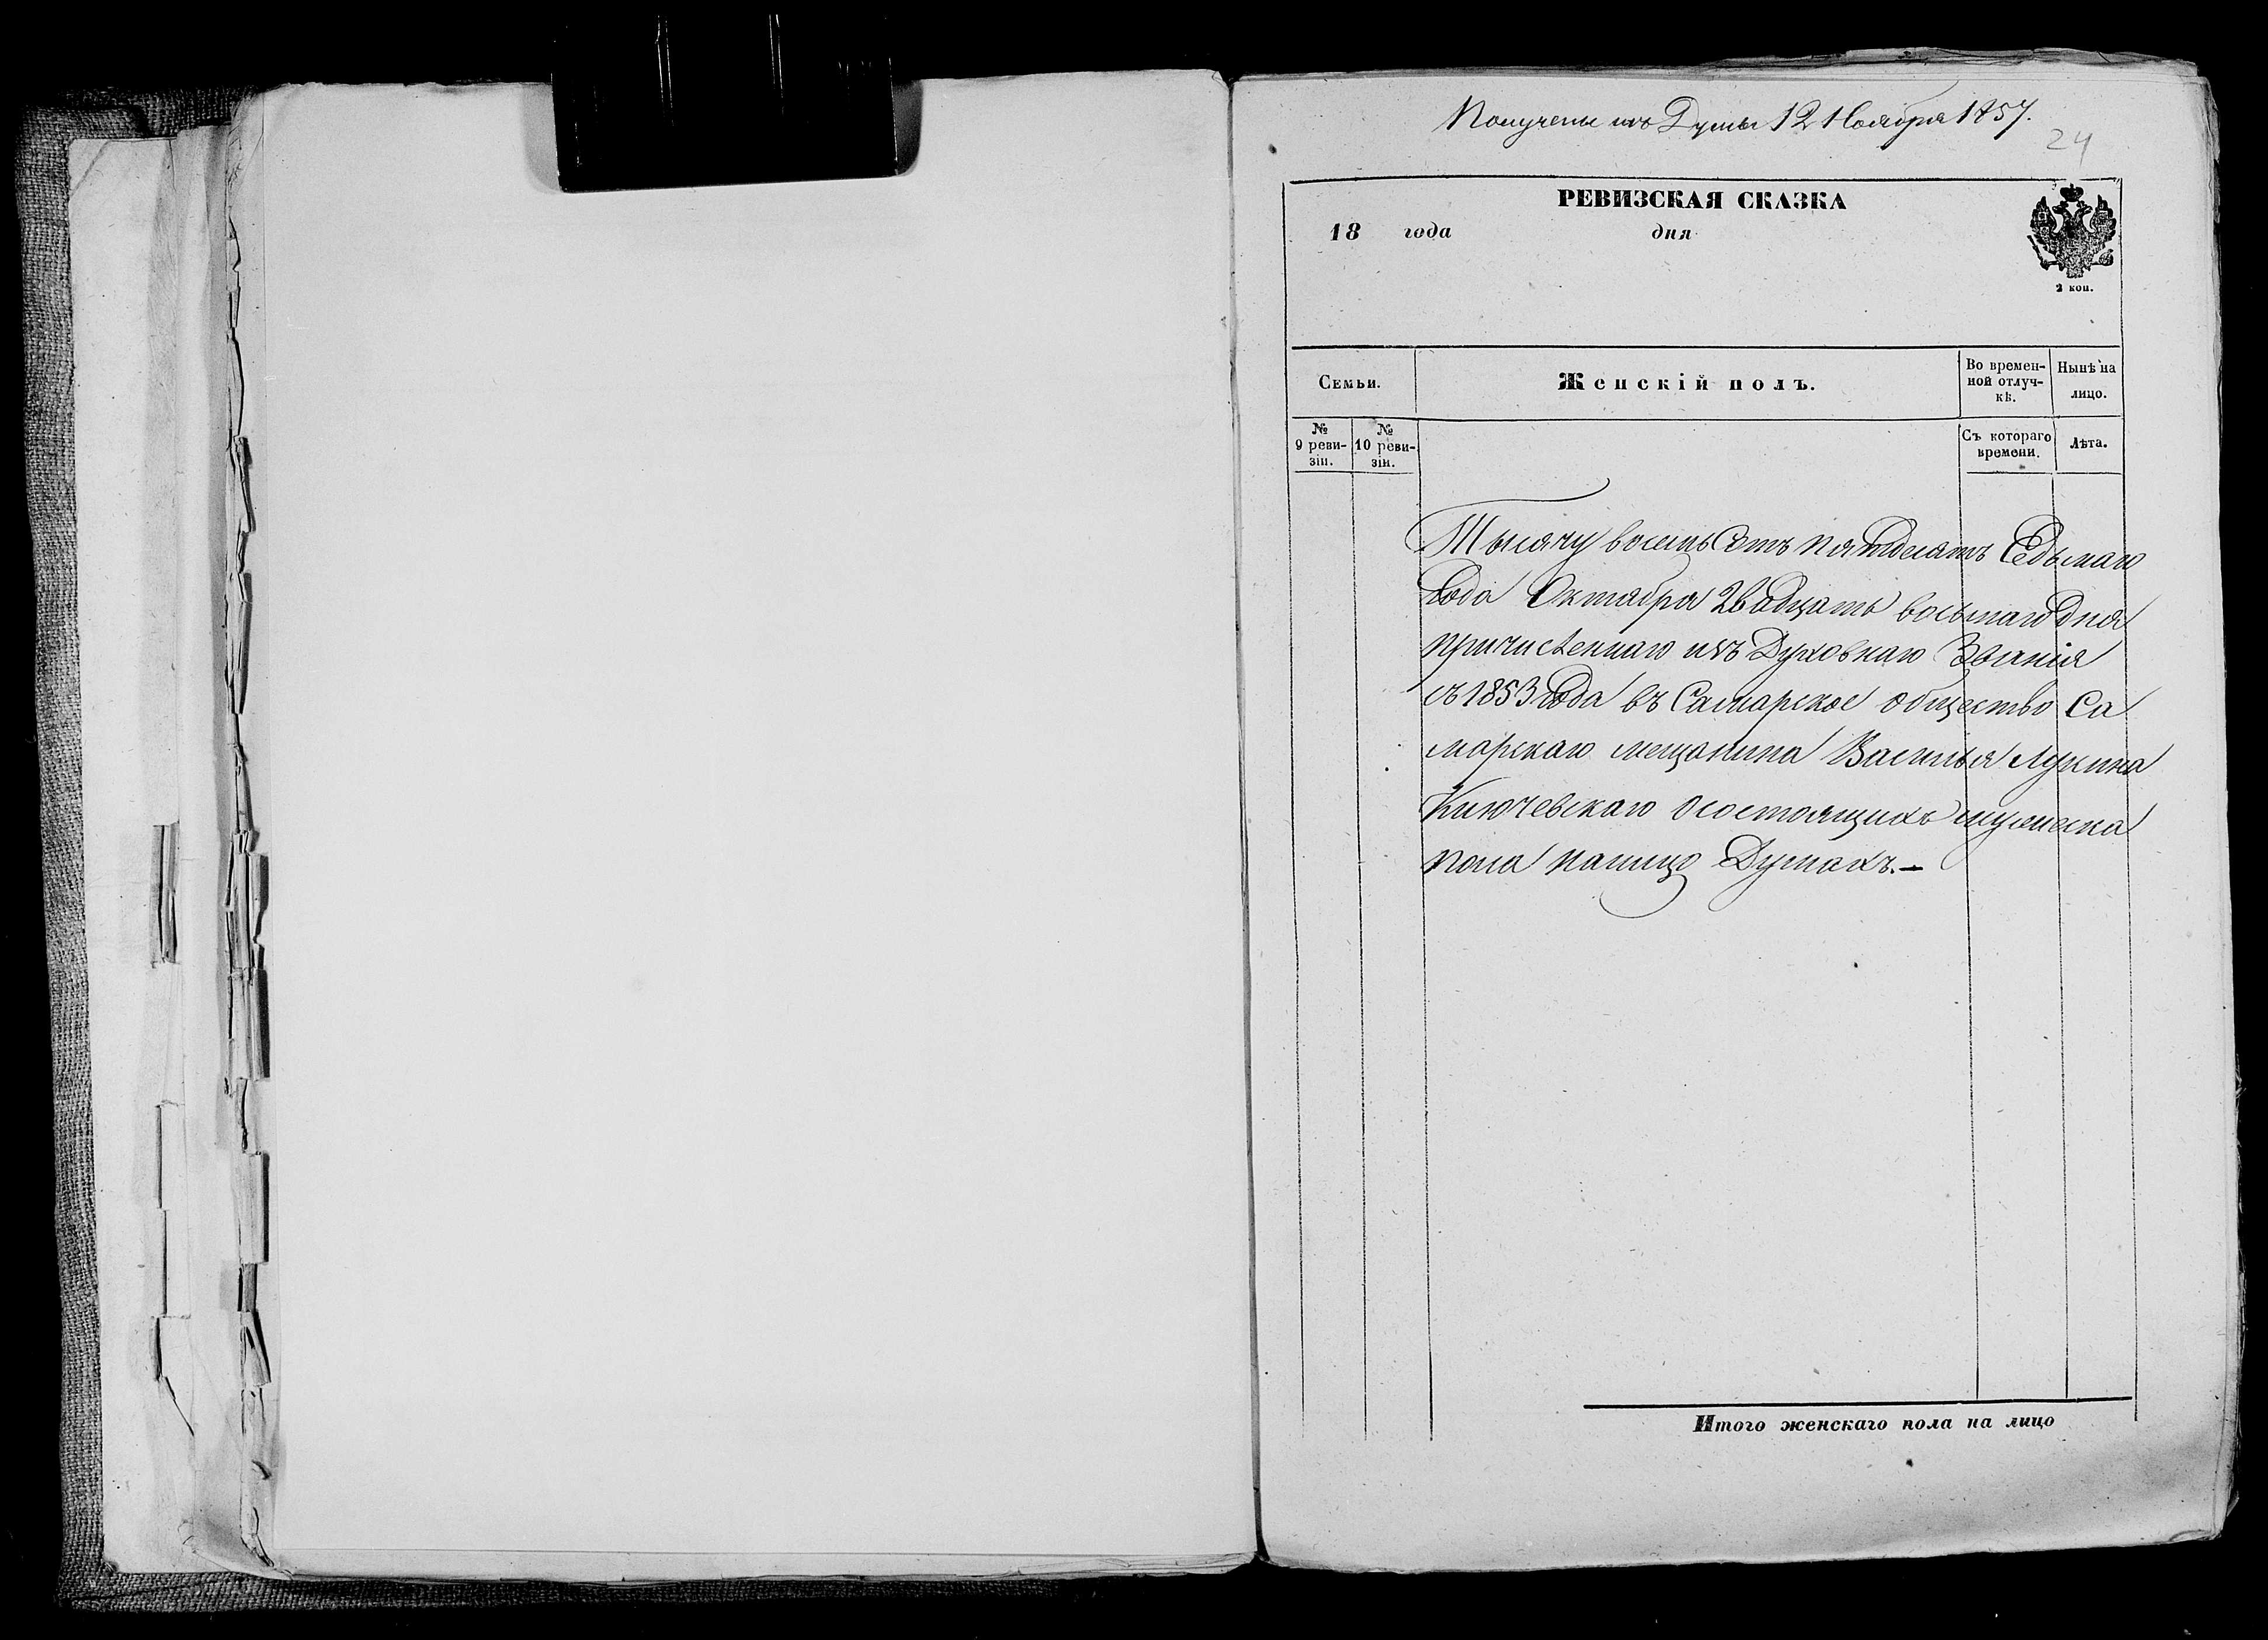 Получены изъ Думы 12 Ноября 1857.
24
РЕВИЗСКАЯ СКАЗКА
18 года дня
2 коп.
Семьи.
Женскій полъ.
Во времен-
ной отлуч-
кѣ.
Нынѣ на
лицо.
№
9 реви-
зіи.
№
10 реви-
зіи.
Съ котораго
времени.
Лѣта.
Тысячу восемь сотъ пятдесятъ седьмаго
года Октября двадцать восьмаго дня
причисленнаго изъ Духовнаго Званія
съ 1853 года въ Самарское общество Са
марскаго мещанина Василья Лукина
Ключевскаго осостоящихъ мужеска
пола налицо Душахъ.—
Итого женскаго пола на лицо